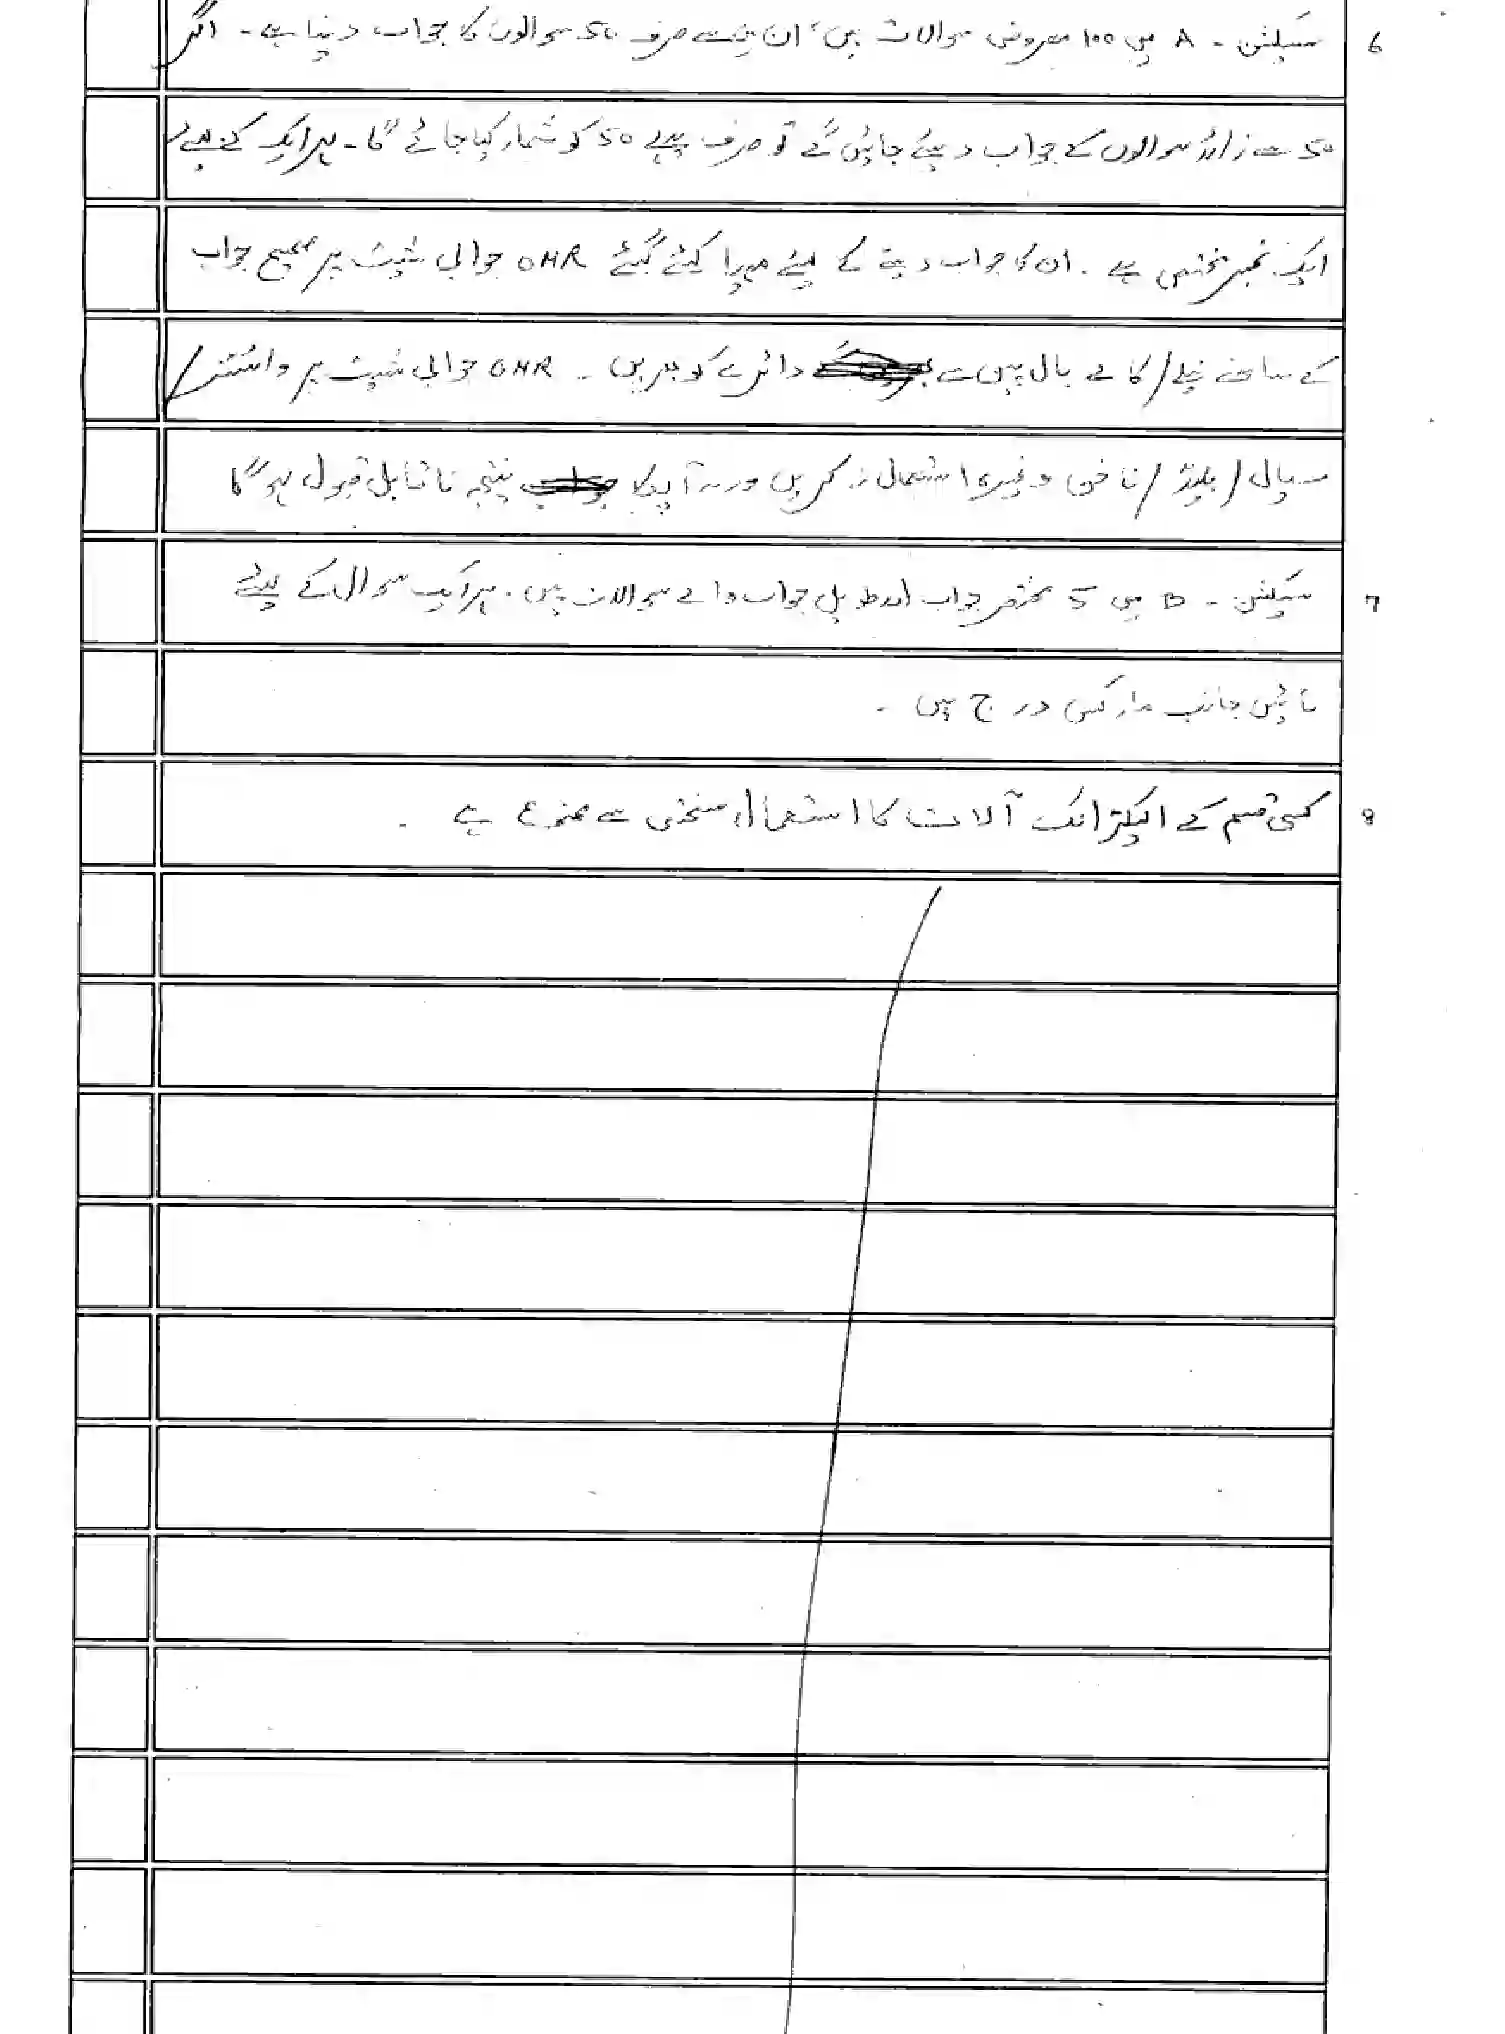 6 سیکشن - A میں 100 معروضی سوالات ہیں، ان میں سے صرف 50 سوالوں کا جواب دینا ہے - اگر
50 سے زائد سوالوں کے جواب دیئے جائیں گے تو صرف پہلے 50 کو شمار کیا جائے گا - ہر ایک کے لئے
ایک نمبر مختص ہے - ان کا جواب دینے کے لئے مہیا کئے گئے OMR جوابی شیٹ پر صحیح جواب
کے سامنے نیلے/کالے بال پین سے دائرے کو بھریں - OMR جوابی شیٹ پر وائٹنر/
سیال/بلیڈ/ناخن وغیرہ استعمال نہ کریں ورنہ آپ کا نتیجہ نا قابل قبول ہوگا
7 سیکشن - B میں 5 مختصر جواب اور طویل جواب والے سوالات ہیں - ہر ایک سوال کے لئے
مارکس درج ہیں -
8 کسی قسم کے الیکٹرانک آلات کا استعمال سختی سے ممنوع ہے -